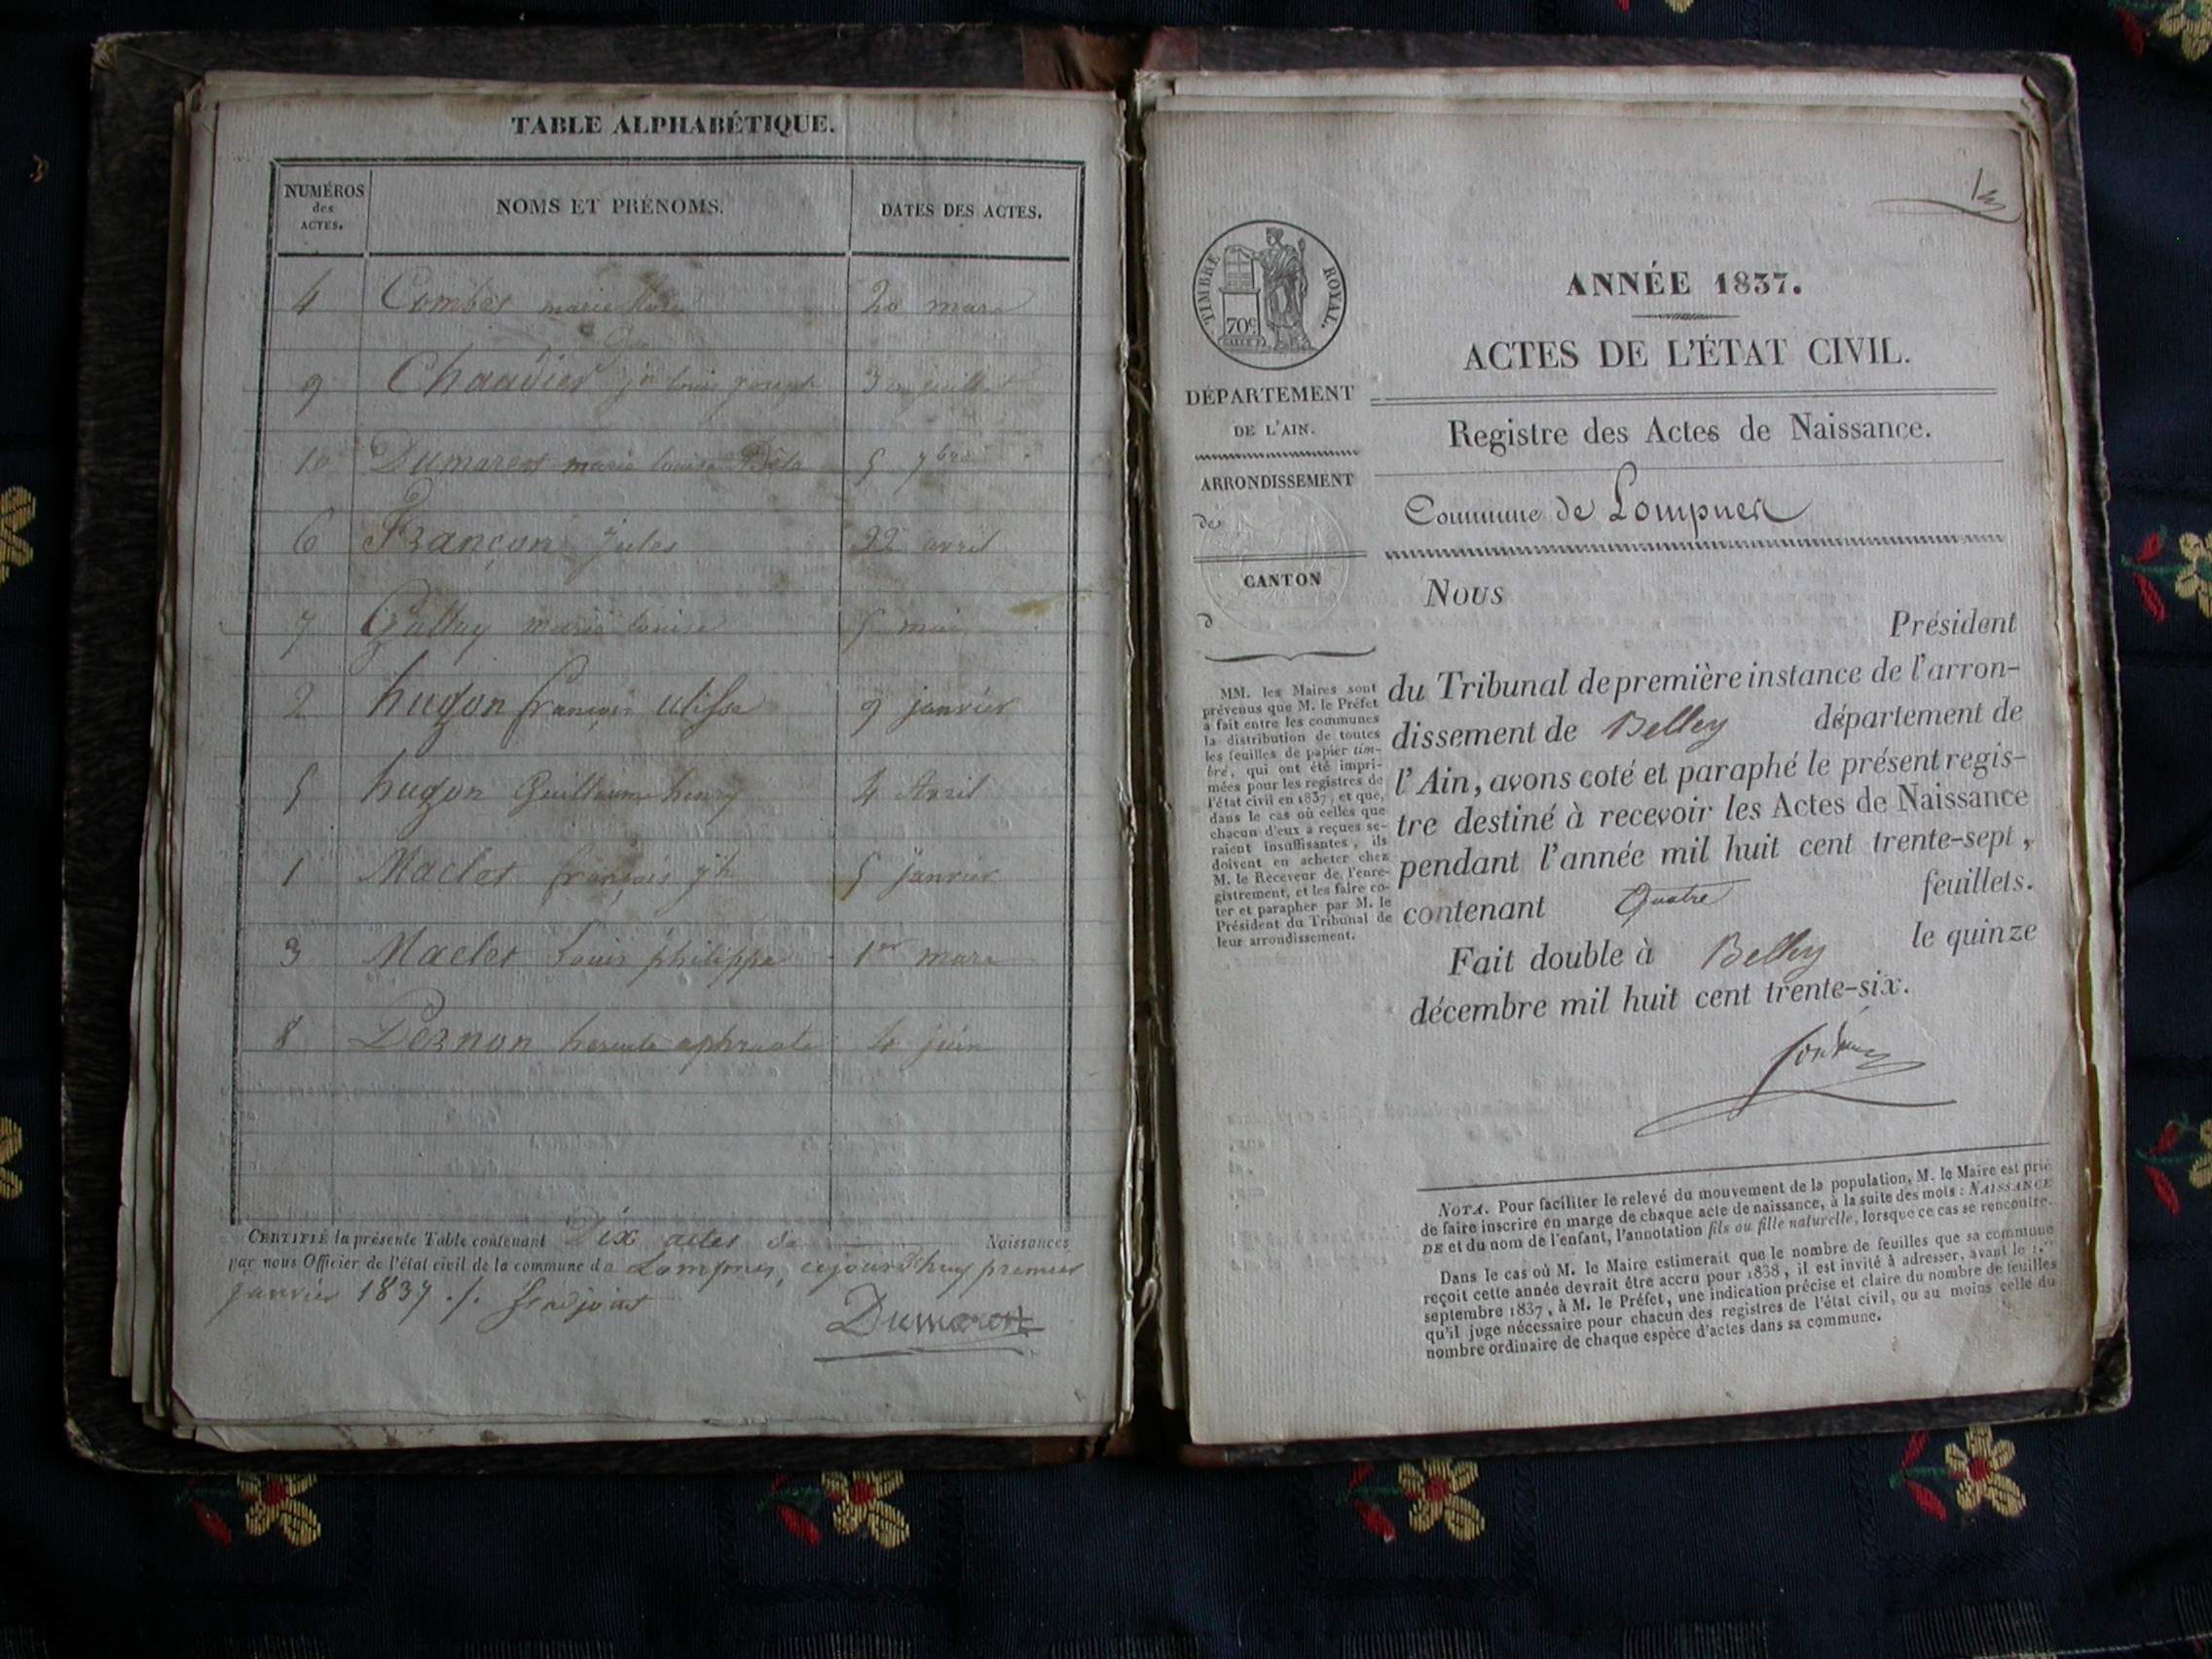 TABLE ALPHABÉTIQUE.
NUMÉROS des ACTES. NOMS ET PRÉNOMS. DATES DES ACTES.
4 Combet marie 20 mars
9 Chaadier jn louis joseph 3 juillet
10 Dumarest marie louise 5 7bre
6 Françon Jules 22 avril
7 Gallay marie louise 5 mai
2 hugon françois ulisse 9 janvier
5 hugon Guillaume henry 4 Avril
1 Maclet françois jh 5 Janvier
3 Maclet Louis philippe 1er mars
8 Pernon hercule 4 juin
CERTIFIÉ la présente Table contenant Dix actes de Naissances
par nous Officier de l'état civil de la commune de Lompnes, cejourd'huy premier
janvier 1837 ./. adjoint
Dumarest
ANNÉE 1837.
ACTES DE L'ÉTAT CIVIL.
Registre des Actes de Naissance.
Commune de Lompnes
TIMBRE ROYAL.
70c
DÉPARTEMENT
DE L'AIN.
ARRONDISSEMENT
de
CANTON
d
MM. les Maires sont
prévenus que M. le Préfet
a fait entre les communes
la distribution de toutes
les feuilles de papier tim-
bré, qui ont été impri-
mées pour les registres de
l'état civil en 1837, et que,
dans le cas où celles que
chacun d'eux a reçues se-
raient insuffisantes, ils
doivent en acheter chez
M. le Receveur de l'enre-
gistrement, et les faire co-
ter et parapher par M. le
Président du Tribunal de
leur arrondissement.
Nous
Président
du Tribunal de première instance de l'arron-
dissement de Belley département de
l'Ain, avons coté et paraphé le présent regis-
tre destiné à recevoir les Actes de Naissance
pendant l'année mil huit cent trente-sept,
contenant Quatre feuillets.
Fait double à Belley le quinze
décembre mil huit cent trente-six.
NOTA. Pour faciliter le relevé du mouvement de la population, M. le Maire est prié
de faire inscrire en marge de chaque acte de naissance, à la suite des mots : NAISSANCE
DE et du nom de l'enfant, l'annotation fils ou fille naturelle, lorsque ce cas se rencontre.
Dans le cas où M. le Maire estimerait que le nombre de feuilles que sa commune
reçoit cette année devrait être accru pour 1838, il est invité à adresser, avant le 1.er
septembre 1837, à M. le Préfet, une indication précise et claire du nombre de feuilles
qu'il juge nécessaire pour chacun des registres de l'état civil, ou au moins celle du
nombre ordinaire de chaque espèce d'actes dans sa commune.